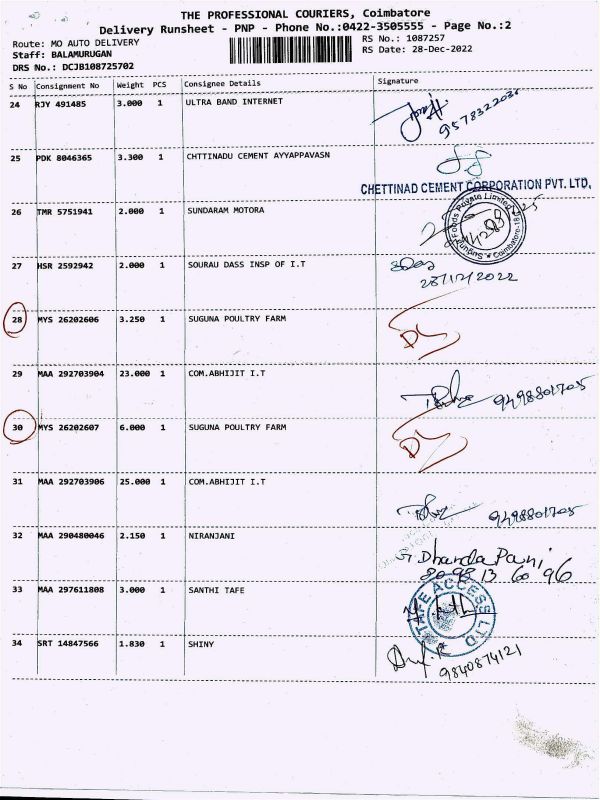 THE PROFESSIONAL COURIERS, Coimbatore
Delivery Runsheet - PNP - Phone No.:0422-3505555 - Page No.:2
Route: MO AUTO DELIVERY RS No.: 1087257
Staff: BALAMURUGAN RS Date: 28-Dec-2022
DRS No.: DCJB108725702
S No Consignment No Weight PCS Consignee Details Signature
24 RJY 491485 3.000 1 ULTRA BAND INTERNET
25 PDK 8046365 3.300 1 CHTTINADU CEMENT AYYAPPAVASN
CHETTINAD CEMENT CORPORATION PVT. LTD.
26 TMR 5751941 2.000 1 SUNDARAM MOTORA
27 HSR 2592942 2.000 1 SOURAU DASS INSP OF I.T
28/12/2022
28 MYS 26202606 3.250 1 SUGUNA POULTRY FARM
29 MAA 292703904 23.000 1 COM.ABHIJIT I.T
9498801705
30 MYS 26202607 6.000 1 SUGUNA POULTRY FARM
31 MAA 292703906 25.000 1 COM.ABHIJIT I.T
9498801705
32 MAA 290480046 2.150 1 NIRANJANI
DhandaPani
80 98 13 60 96
33 MAA 297611808 3.000 1 SANTHI TAFE
TAFE ACCESS LTD
34 SRT 14847566 1.830 1 SHINY
9840874121